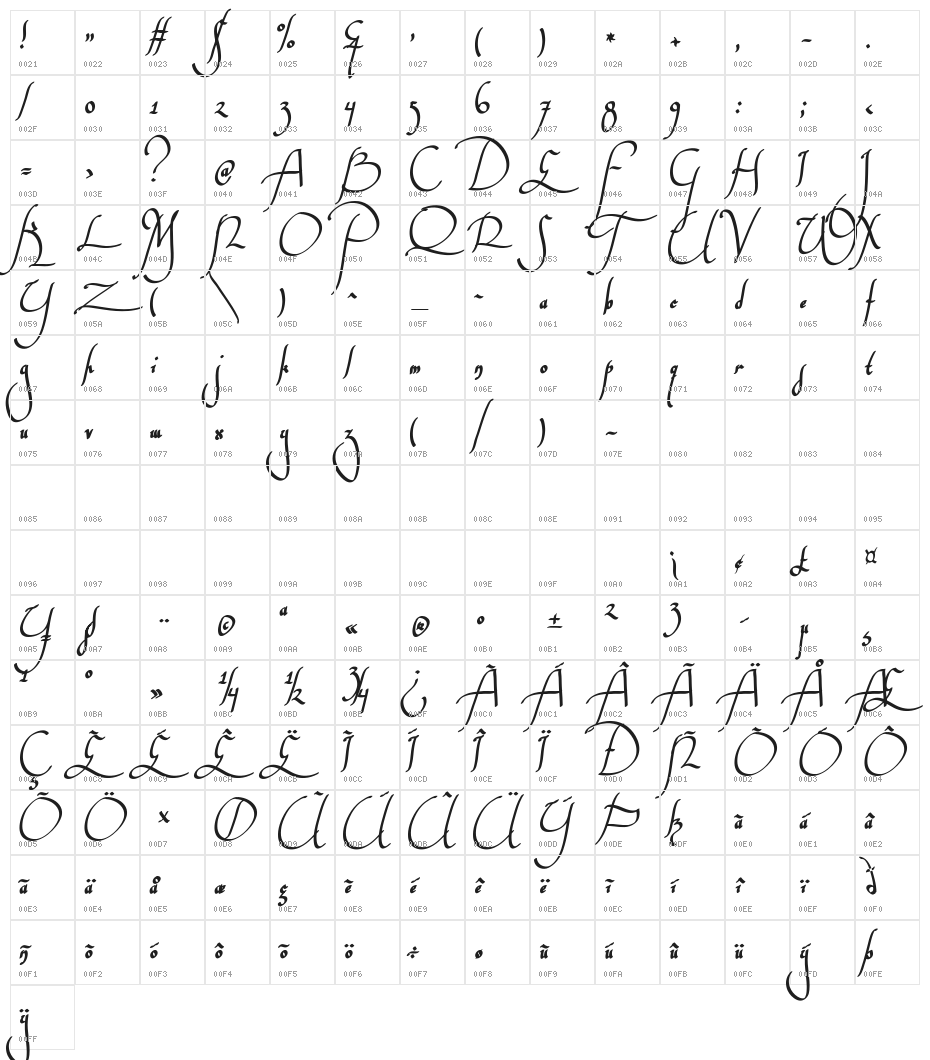 ! " # $ % & ' ( ) * + , - .
0021 0022 0023 0024 0025 0026 0027 0028 0029 002A 002B 002C 002D 002E
/ 0 1 2 3 4 5 6 7 8 9 : ; <
002F 0030 0031 0032 0033 0034 0035 0036 0037 0038 0039 003A 003B 003C
= > ? @ A B C D E F G H I J
003D 003E 003F 0040 0041 0042 0043 0044 0045 0046 0047 0048 0049 004A
K L M N O P Q R S T U V W X
004B 004C 004D 004E 004F 0050 0051 0052 0053 0054 0055 0056 0057 0058
Y Z ( \ ) ^ _ ` a b c d e f
0059 005A 005B 005C 005D 005E 005F 0060 0061 0062 0063 0064 0065 0066
g h i j k l m n o p q r s t
0067 0068 0069 006A 006B 006C 006D 006E 006F 0070 0071 0072 0073 0074
u v w x y z ( / ) ~
0075 0076 0077 0078 0079 007A 007B 007C 007D 007E 0080 0082 0083 0084
0085 0086 0087 0088 0089 008A 008B 008C 008E 0091 0092 0093 0094 0095
¡ ¢ £ ¤
0096 0097 0098 0099 009A 009B 009C 009E 009F 00A0 00A1 00A2 00A3 00A4
¥ § ¨ © ª « ® ° ± ² ³ ´ µ ¸
00A5 00A7 00A8 00A9 00AA 00AB 00AE 00B0 00B1 00B2 00B3 00B4 00B5 00B8
¹ º » ¼ ½ ¾ ¿ À Á Â Ã Ä Å Æ
00B9 00BA 00BB 00BC 00BD 00BE 00BF 00C0 00C1 00C2 00C3 00C4 00C5 00C6
Ç È É Ê Ë Ì Í Î Ï Ð Ñ Ò Ó Ô
00C7 00C8 00C9 00CA 00CB 00CC 00CD 00CE 00CF 00D0 00D1 00D2 00D3 00D4
Õ Ö × Ø Ù Ú Û Ü Ý Þ ß à á â
00D5 00D6 00D7 00D8 00D9 00DA 00DB 00DC 00DD 00DE 00DF 00E0 00E1 00E2
ã ä å æ ç è é ê ë ì í î ï ð
00E3 00E4 00E5 00E6 00E7 00E8 00E9 00EA 00EB 00EC 00ED 00EE 00EF 00F0
ñ ò ó ô õ ö ÷ ø ù ú û ü ý þ
00F1 00F2 00F3 00F4 00F5 00F6 00F7 00F8 00F9 00FA 00FB 00FC 00FD 00FE
ÿ
00FF